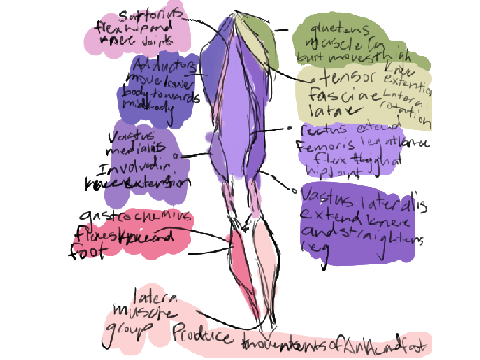 Sartorius
flex hip and
knee joints
Adductors
move lower
body towards
midbody
Vastus
medialis
Involved in
knee extension
gastrocnemius
flexes knee and
foot
latera
muscle
group Produce movements of Ankle and foot
gluteus
muscle
butt moves thigh
tensor
fasciae
latae
knee
extention
Lateral
rotation
rectus extend
Femoris leg at knee
flex thigh at
hip joint
Vastus lateralis
extend knee
and straightens
leg